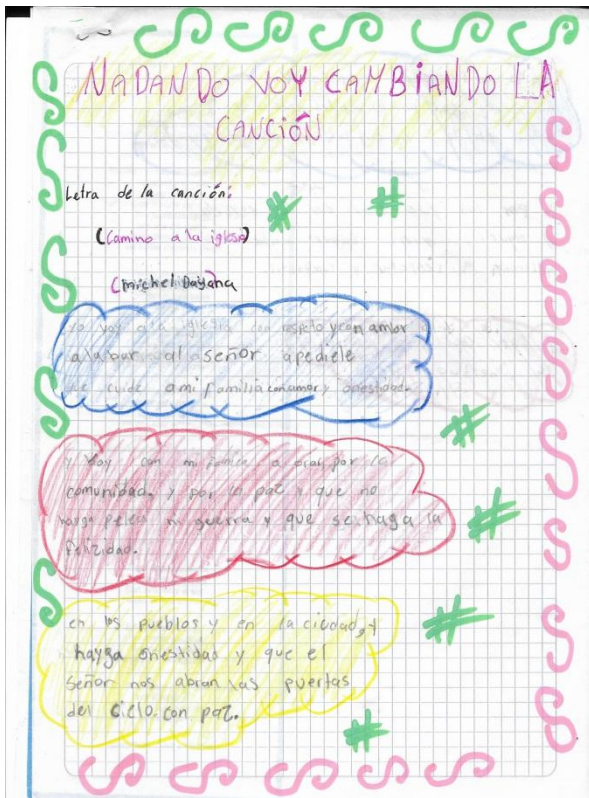 NADANDO VOY CAMBIANDO LA
CANCIÓN
Letra de la canción:
(Camino a la iglesia)
(michel Dayana
yo voy a la iglesia con respeto y con amor
alabar al señor apedirle
que cuide ami familia con amor y onestidad.
y voy con mi familia a orar por la
comunidad, y por la paz y que no
hayga peleas ni guerra y que se haga la
felizidad.
en los pueblos y en la ciudad, y
hayga onestidad y que el
señor nos abran las puertas
del cielo. con paz.